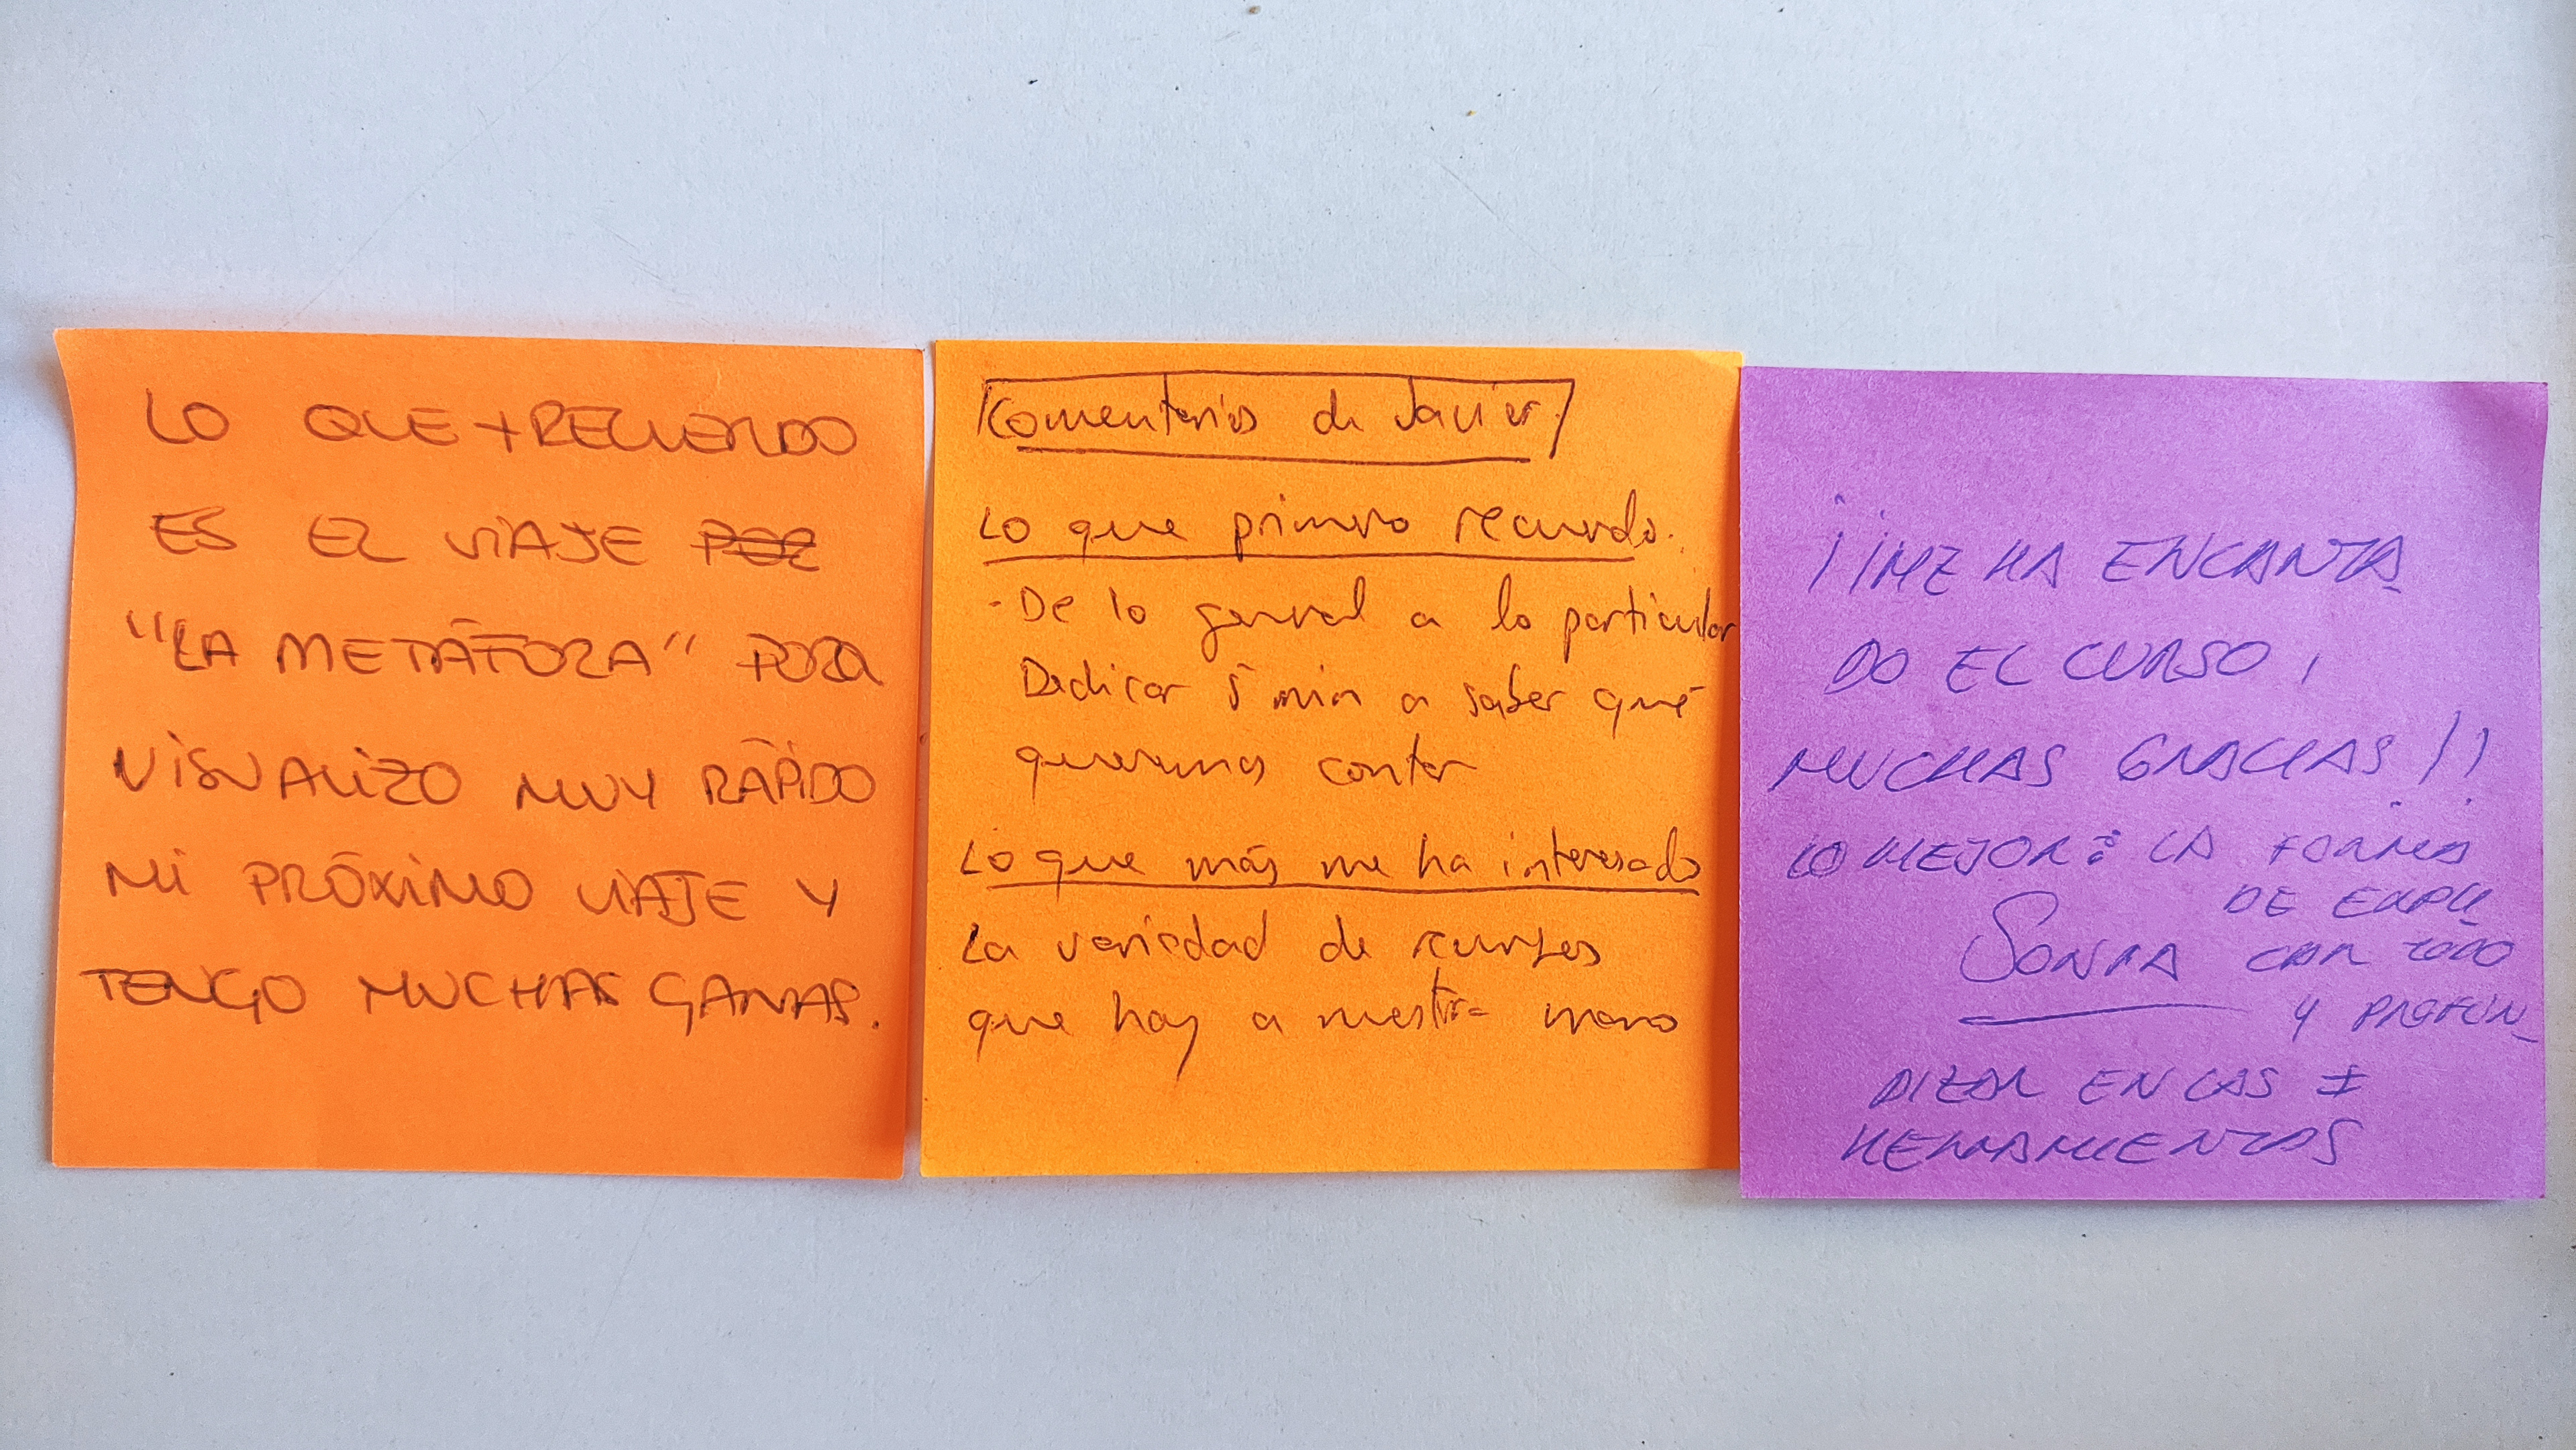 LO QUE + RECUERDO
ES EL VIAJE POR
"LA METÁFORA" PORQ
VISUALIZO MUY RÁPIDO
MI PRÓXIMO VIAJE Y
TENGO MUCHAS GANAS.
Comentarios de Javier
Lo que primero recuerdo.
- De lo general a lo particular
Dedicar 5 min a saber qué
queremos contar
Lo que más me ha interesado
La variedad de recursos
que hay a nuestra mano
¡¡ME HA ENCANTA
DO EL CURSO,
MUCHAS GRACIAS!!
LO MEJOR: LA FORMA
DE EXPLI_
CAR TODO
Y PROFUN_
DIZAR EN LAS ≠
HERRAMIENTAS
SONIA